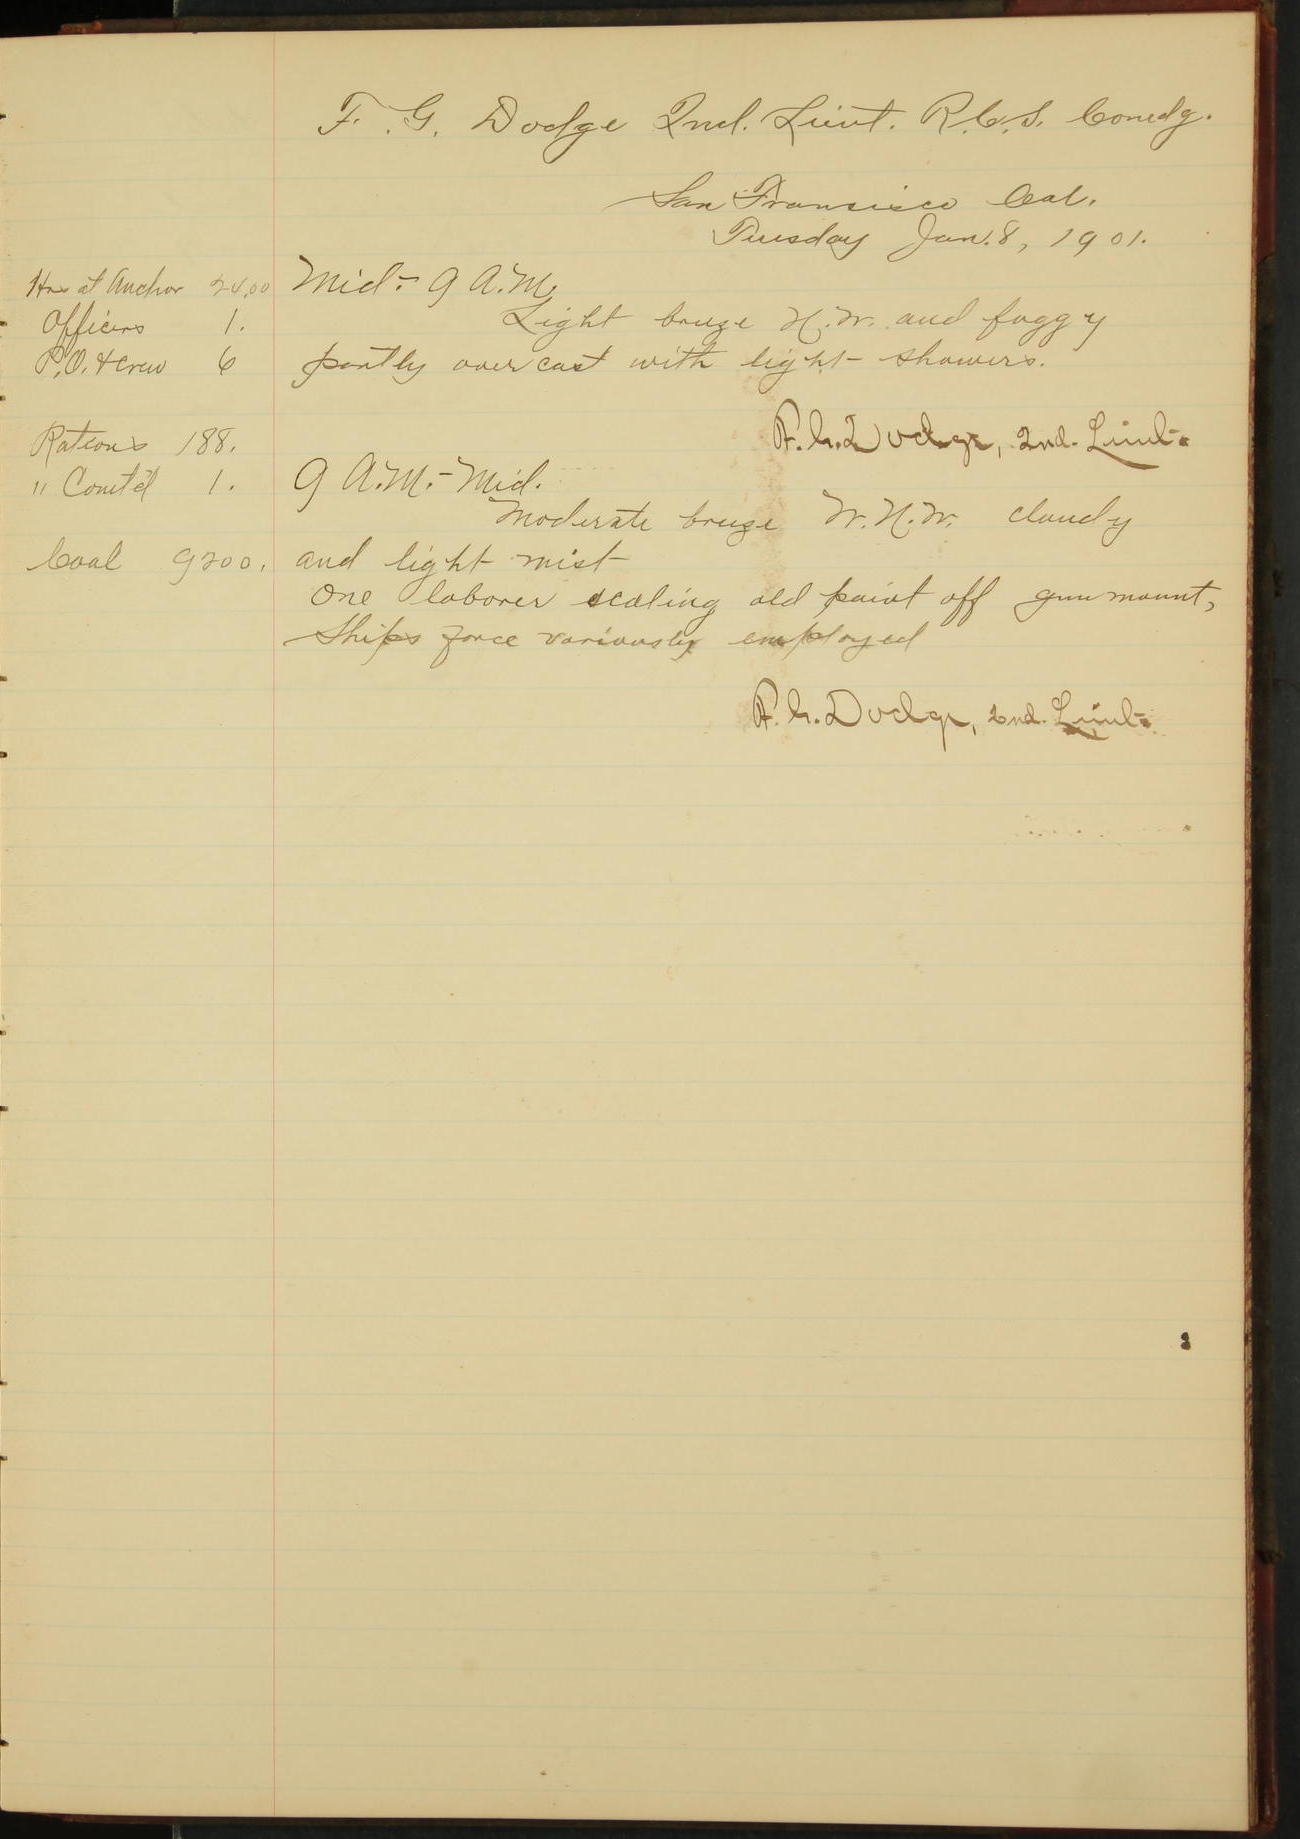 F. G. Dodge 2nd. Lieut. R.C.S. Comdg.
San Francisco Cal.
Tuesday Jan. 8, 1901.
Hrs at Anchor 24.00
Officers 1.
P.O. & Crew 6
Rations 188.
" Comt'd 1.
Coal 9200.
Mid.- 9 A.M.
Light breeze N.W. and foggy
partly overcast with light showers.
F. G. Dodge, 2nd. Lieut.
9 A.M.- Mid.
Moderate breeze W.N.W. cloudy
and light mist
One laborer scaling old paint off gun mount,
Ships force variously employed
F. G. Dodge, 2nd. Lieut.